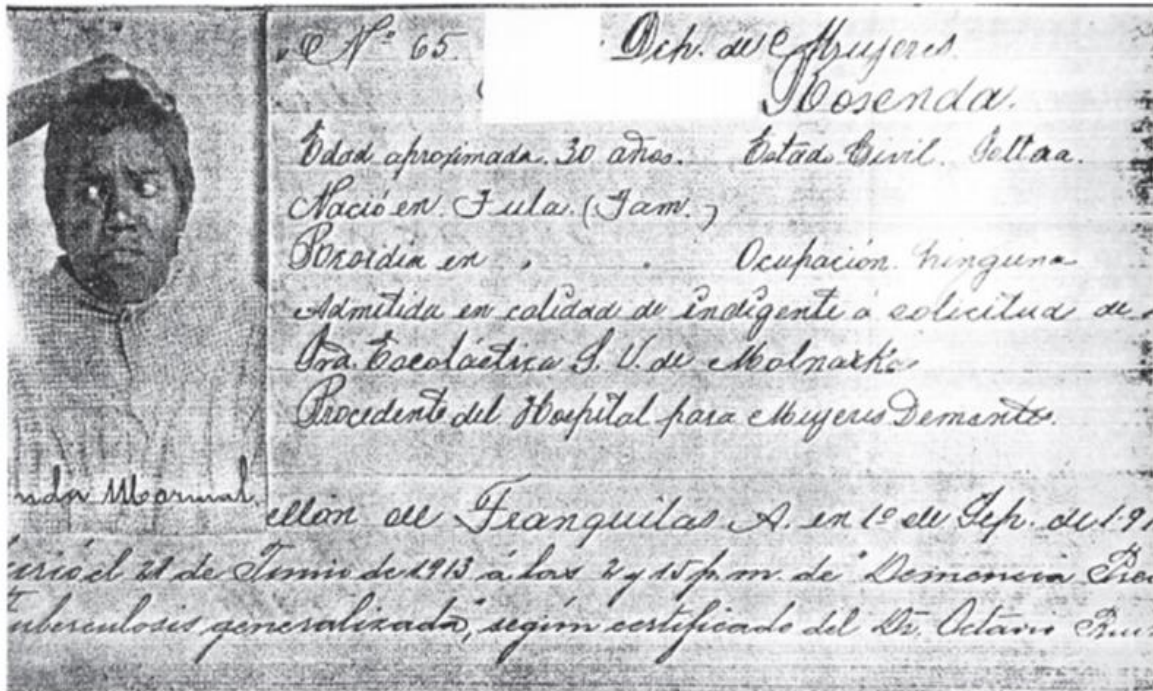 Nº 65. Dep. de Mujeres.
Rosenda.
Edad aproximada. 30 años. Estado Civil. Soltera.
Nació en. Tula. (Tam.)
Residía en . . Ocupación. ninguna
Admitida en calidad de indigente á solicitud de
Sra. Escolástica S. V. de
Procedente del Hospital para Mujeres Dementes.
Mormal
ellón de Tranquilas A. en 1º de Sep. de 191
urió el 21 de Junio de 1913 á las 2 y 15 p.m. de "Demencia Prec
uberculosis generalizada", según certificado del Dr. Octavio